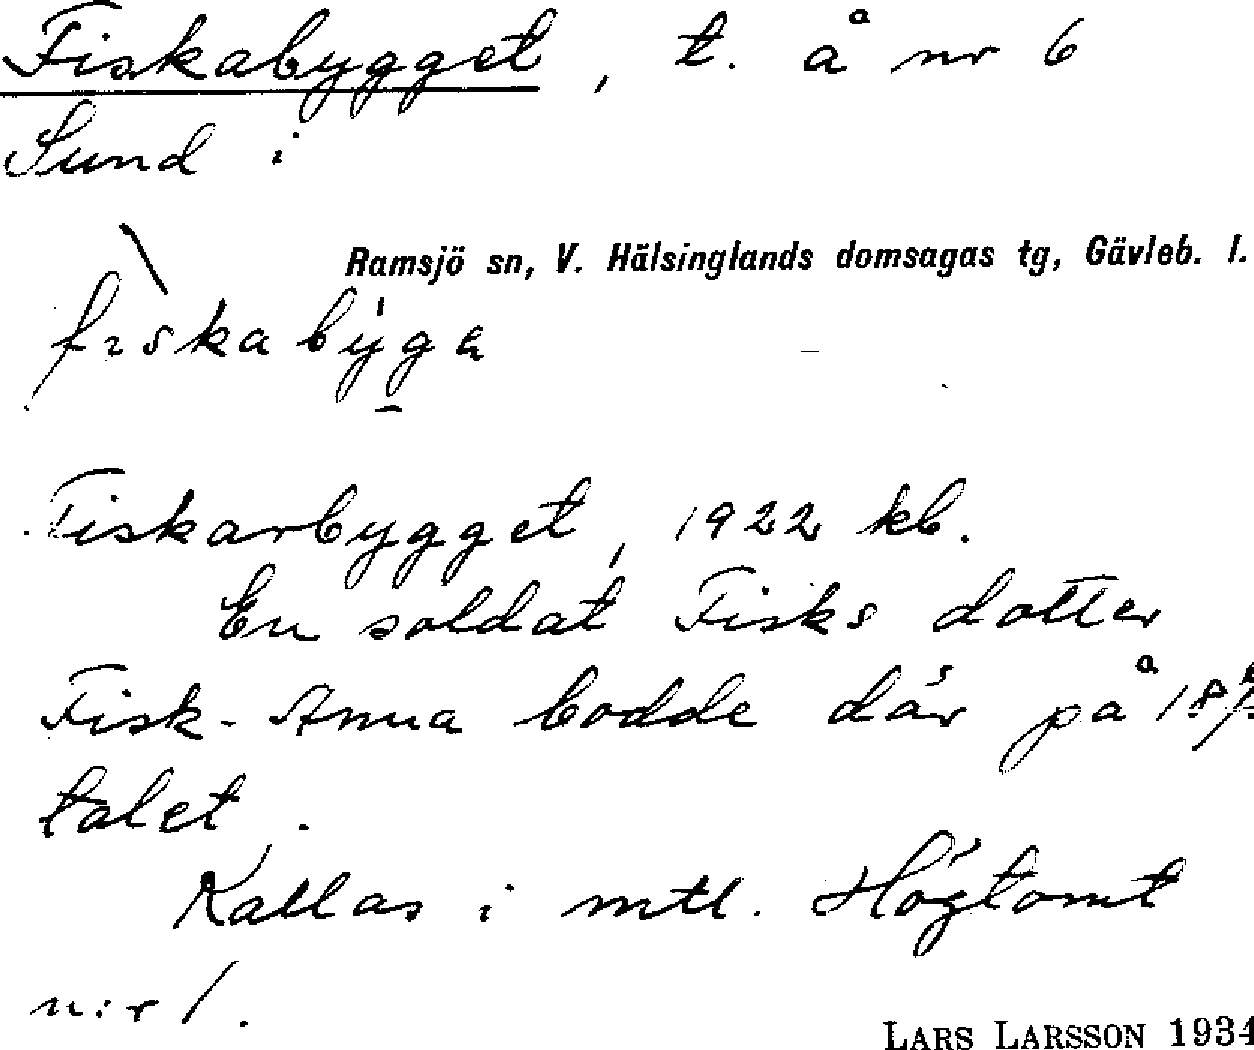 Fiskabygget, t. å nr 6
Sund i
Ramsjö sn, V. Hälsinglands domsagas tg, Gävleb. l.
Fiskarbygget, 1922 kb.
En soldat Fisks dotter
Fisk-Anna bodde där på
talet.
Kallas i mtl. Högtomt
n:r 1.
LARS LARSSON 1934